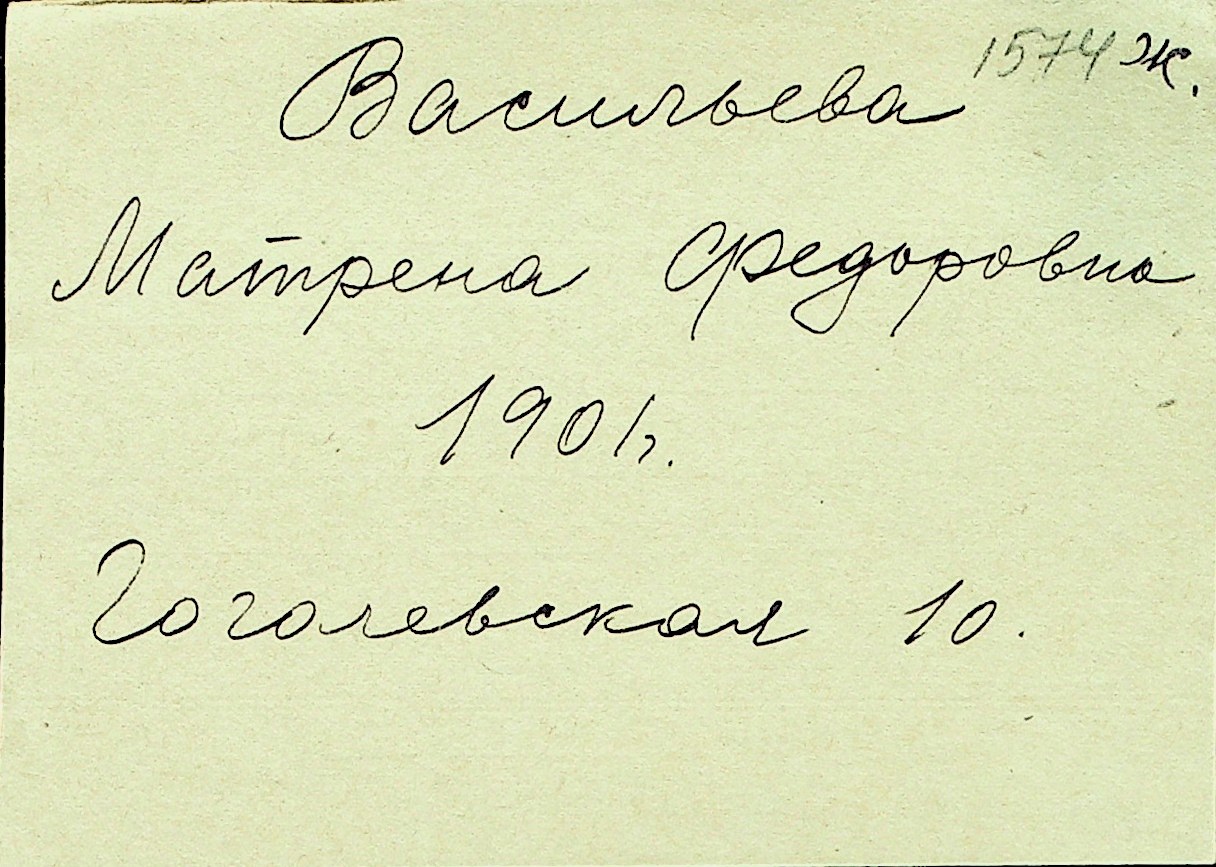 1574 ж.
Васильева
Матрена Федоровна
1901г.
Гоголевская 10.